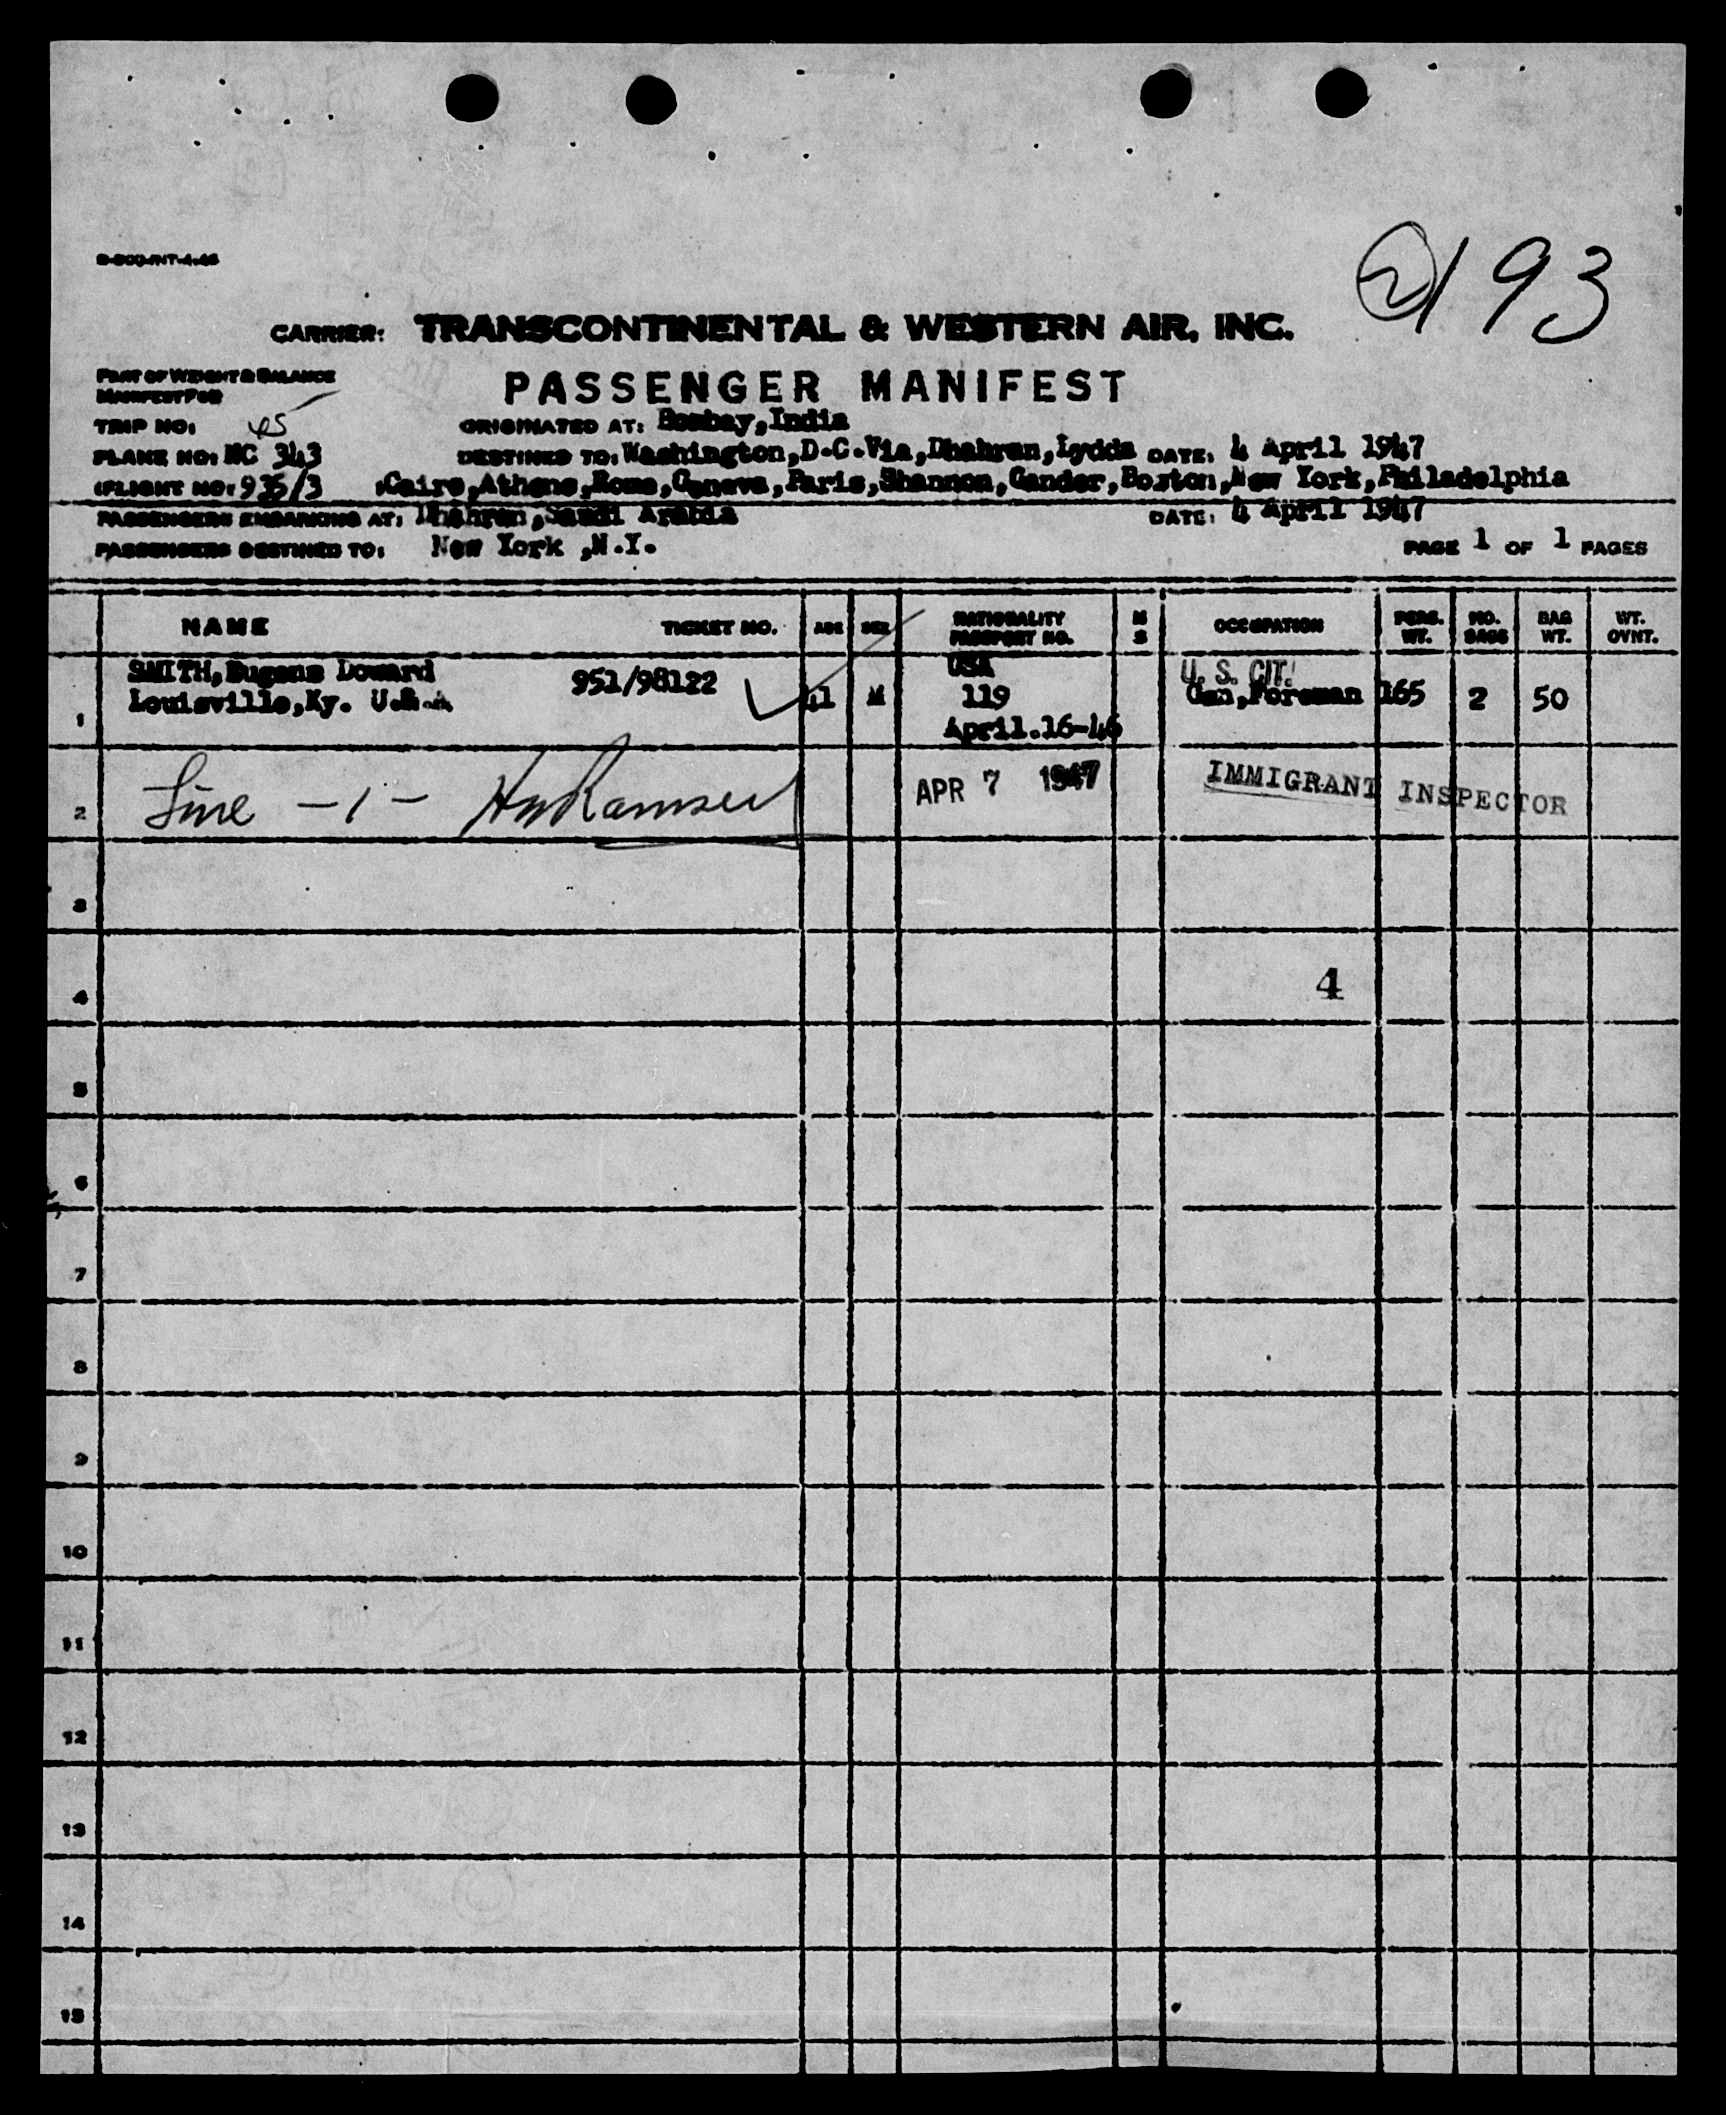 2 193
CARRIER: TRANSCONTINENTAL & WESTERN AIR, INC.
PART OF WEIGHT & BALANCE
MANIFEST FOR
PASSENGER MANIFEST
TRIP NO: 45 ORIGINATED AT: Bombay, India
PLANE NO: NC 343 DESTINED TO: Washington,D.C.Via,Dhahran,Lydda DATE: 4 April 1947
FLIGHT NO: 935/3 ,Cairo,Athens,Rome,Geneva,Paris,Shannon,Gander,Boston,New York,Philadelphia
PASSENGERS EMBARKING AT: Dhahran,Saudi Arabia DATE: 4 April 1947
PASSENGERS DESTINED TO: New York ,N.Y. PAGE 1 OF 1 PAGES
NAME TICKET NO. AGE SEX NATIONALITY PASSPORT NO. M S OCCUPATION PERS. WT. NO. BAGS BAG WT. WT. OVNT.
SMITH,Eugene USA U.S. CIT.
Louisville,Ky. U.S.A 951/98122 41 M 119 Gen,Foreman 165 2 50
1 April.16-46
2 Line - 1 - APR 7 1947 IMMIGRANT INSPECTOR
3
4 4
5
6
7
8
9
10
11
12
13
14
15